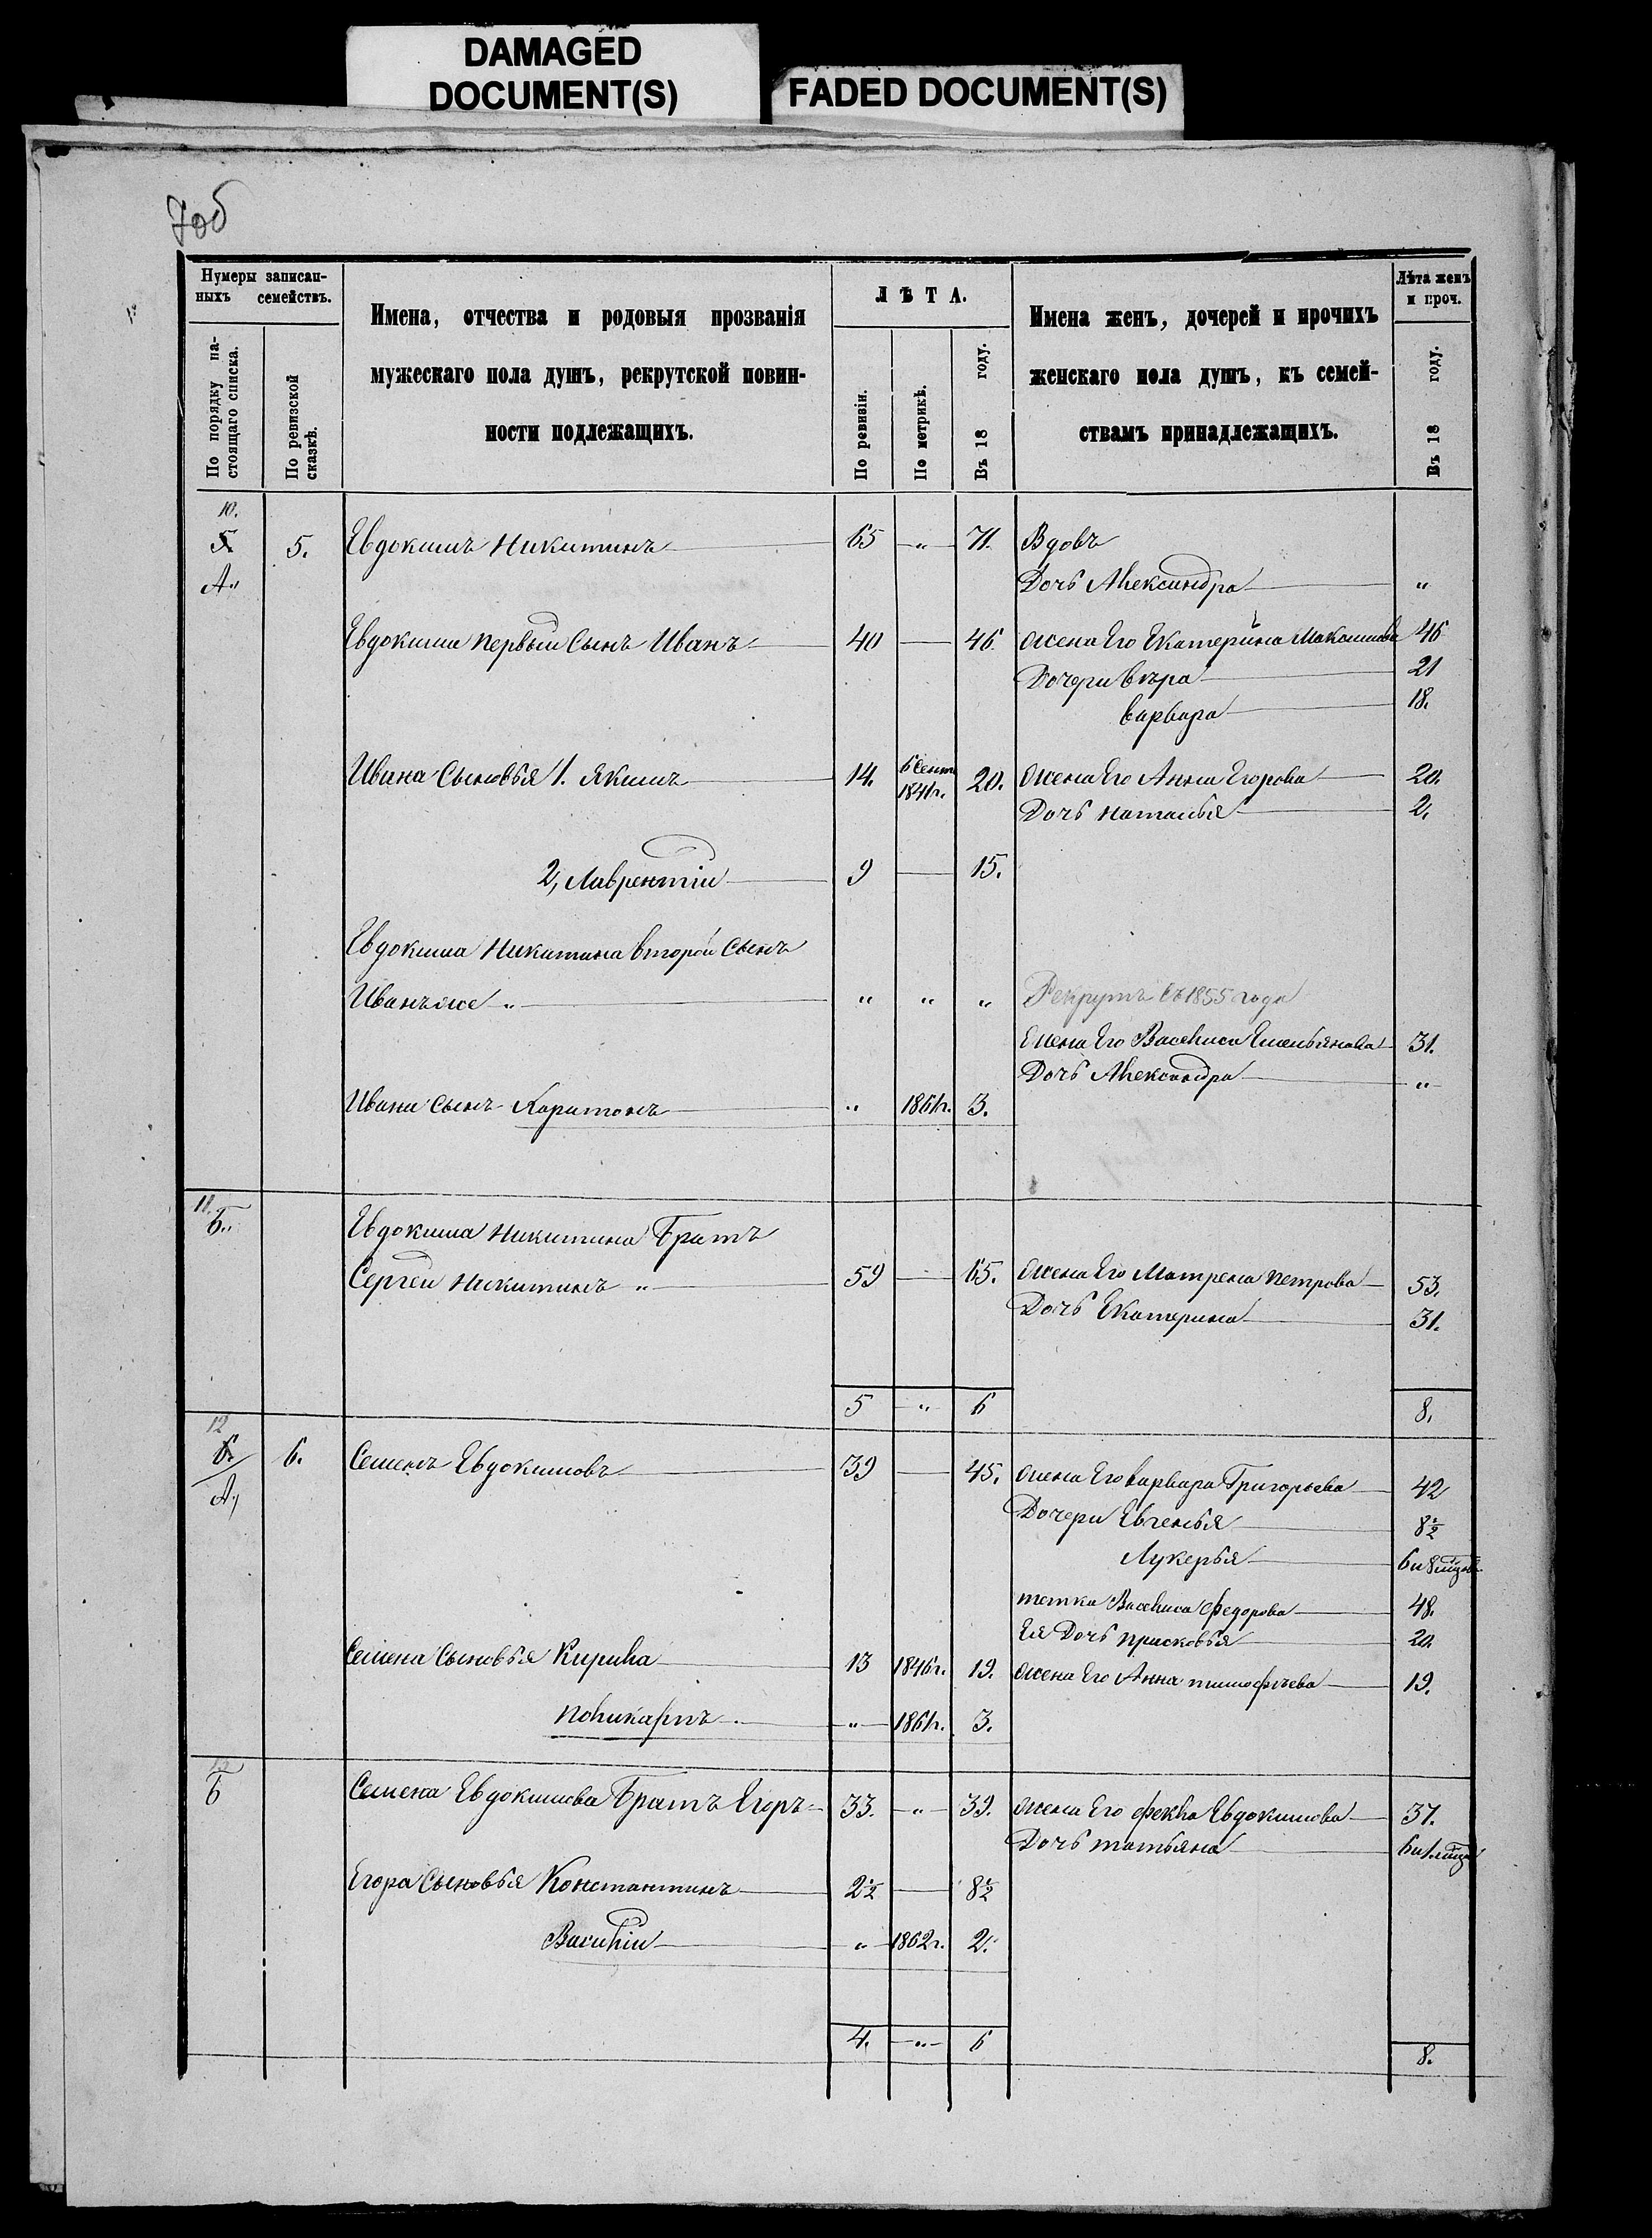 DAMAGED
DOCUMENT(S)
FADED DOCUMENT(S)
7об
Нумеры записан-
ныхъ семействъ.
По порядку на-
стоящаго списка.
По ревизской
сказкѣ.
Имена, отчества и родовыя прозванія
мужескаго пола душъ, рекрутской повин-
ности подлежащихъ.
ЛѢТА.
По ревизіи.
По метрикѣ.
Въ 18 году.
Имена женъ, дочерей и прочихъ
женскаго пола душъ, къ семей-
ствамъ принадлежащихъ.
Лѣта женъ
и проч.
Въ 18 году.
10.
5. 5. Евдокимъ Никитинъ 65 „ 71. Вдовъ
А„ Дочь Александра „
Евдокима первый Сынъ Иванъ 40 — 46. жена Его Екатерина 46
Дочери вѣра 21
варвара 18.
Ивана Сыновья 1. Якимъ 14. 6 Сент 1841г. 20. жена Его Анна Егорова 20.
Дочь наталья 2.
2, Лаврентій 9 — 15.
Евдокима Никитина второй Сынъ
Иванъ же „ „ „ „ Рекрутъ съ 1855 года
жена Его Василиса Емельянова 31.
Дочь Александра „
Ивана Сынъ Харитонъ „ 1861г. 3.
11.
Б„ Евдокима Никитина Братъ
Сергей Никитинъ „ 59 — 65. жена Его Матрена петрова 53.
Дочь Екатерина 31.
5 „ 6 8.
12
6. 6. Семенъ Евдокимовъ 39 — 45. жена Его варвара Григорьева 42
А, Дочери Евгенья 8½
Лукерья 6 и 8 мѣсяц.
тетка Василиса федорова 48.
Ея Дочь прасковья 20.
Семена Сыновья Кирила 13 1846г. 19. жена Его Анна тимофѣева 19.
поликарпъ „ 1861г. 3.
Б Семена Евдокимова Братъ Егоръ 33. „ 39. жена Его фекла Евдокимова 37.
Дочь татьяна
Егора Сыновья Константинъ 2½ — 8½
Василій „ 1862г. 2.
4. „ 6 8.